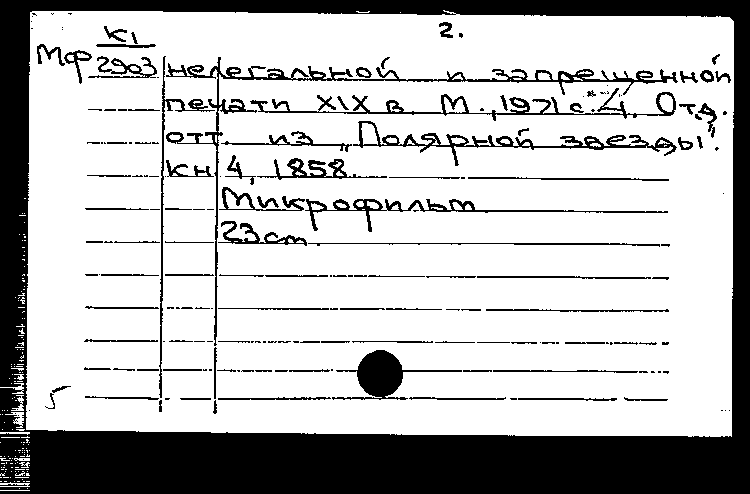 2.
К1
Мф 2903 нелегальной и запрещенной
печати XIX в. М., 1971 с. 4. Отд.
отт. из „Полярной звезды".
кн. 4, 1858.
Микрофильм
23 cm.
5